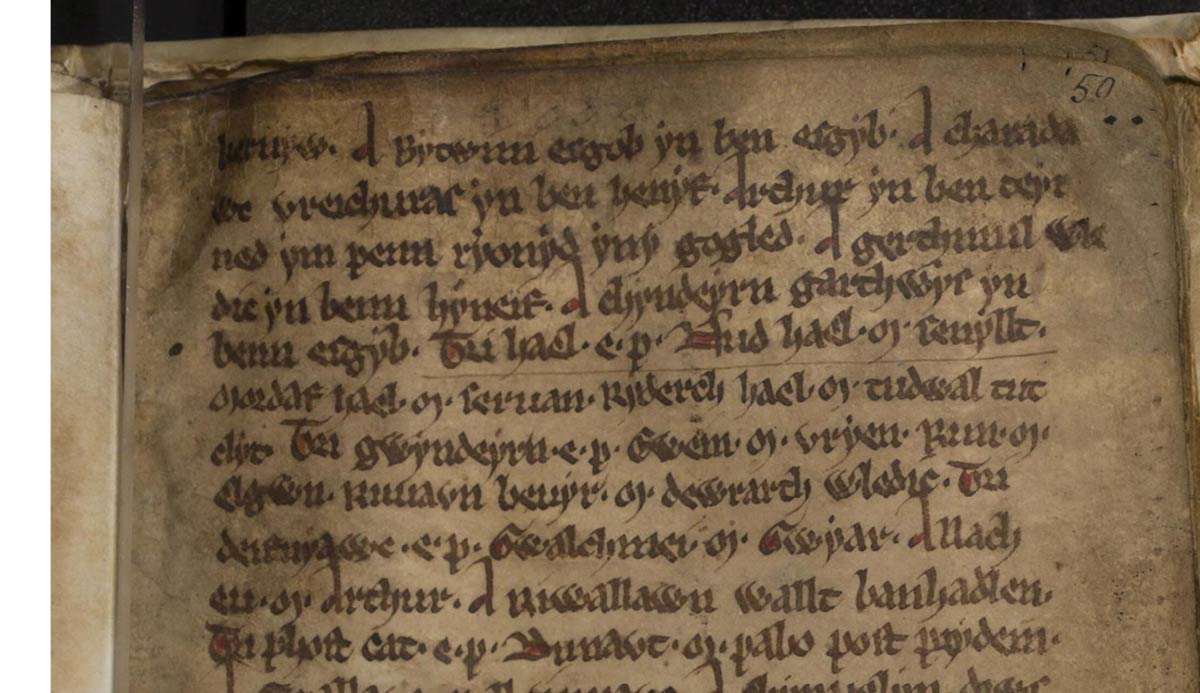 kernyw. A Bytwini esgob yn ben esgyb. A charada
wc vreichuras yn ben henyf. Arthur yn ben teyr
ned ym penn ryonyd yny gogled. A gerthmul wle
dic yn benn hyneif. A chyndeyrn garthwys yn
benn esgyb. Tri hael. e. p. Nud hael. m. senyllt.
mordaf hael. m. seruan. Ryderch hael. m. tudwal tut
clyt. Tri gwyndeyrn. e. p. Gwein. m. vryen. Run. m.
elgwn. Ruuavn beuyr. m. dewrarth wledic. Tri
deifnyawc. e. p. Gwalchmei. m. Gwyar. A llach
eu. m. Arthur. A Riwallawn wallt banhadlen.
Tri phost cat. e. p. Dunavt. m. pabo post prydein.
50